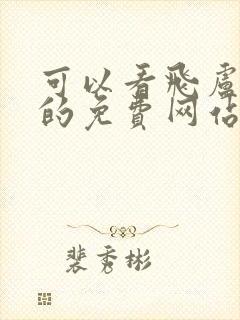 可以看飛盧
的免費网佔
裴秀彬